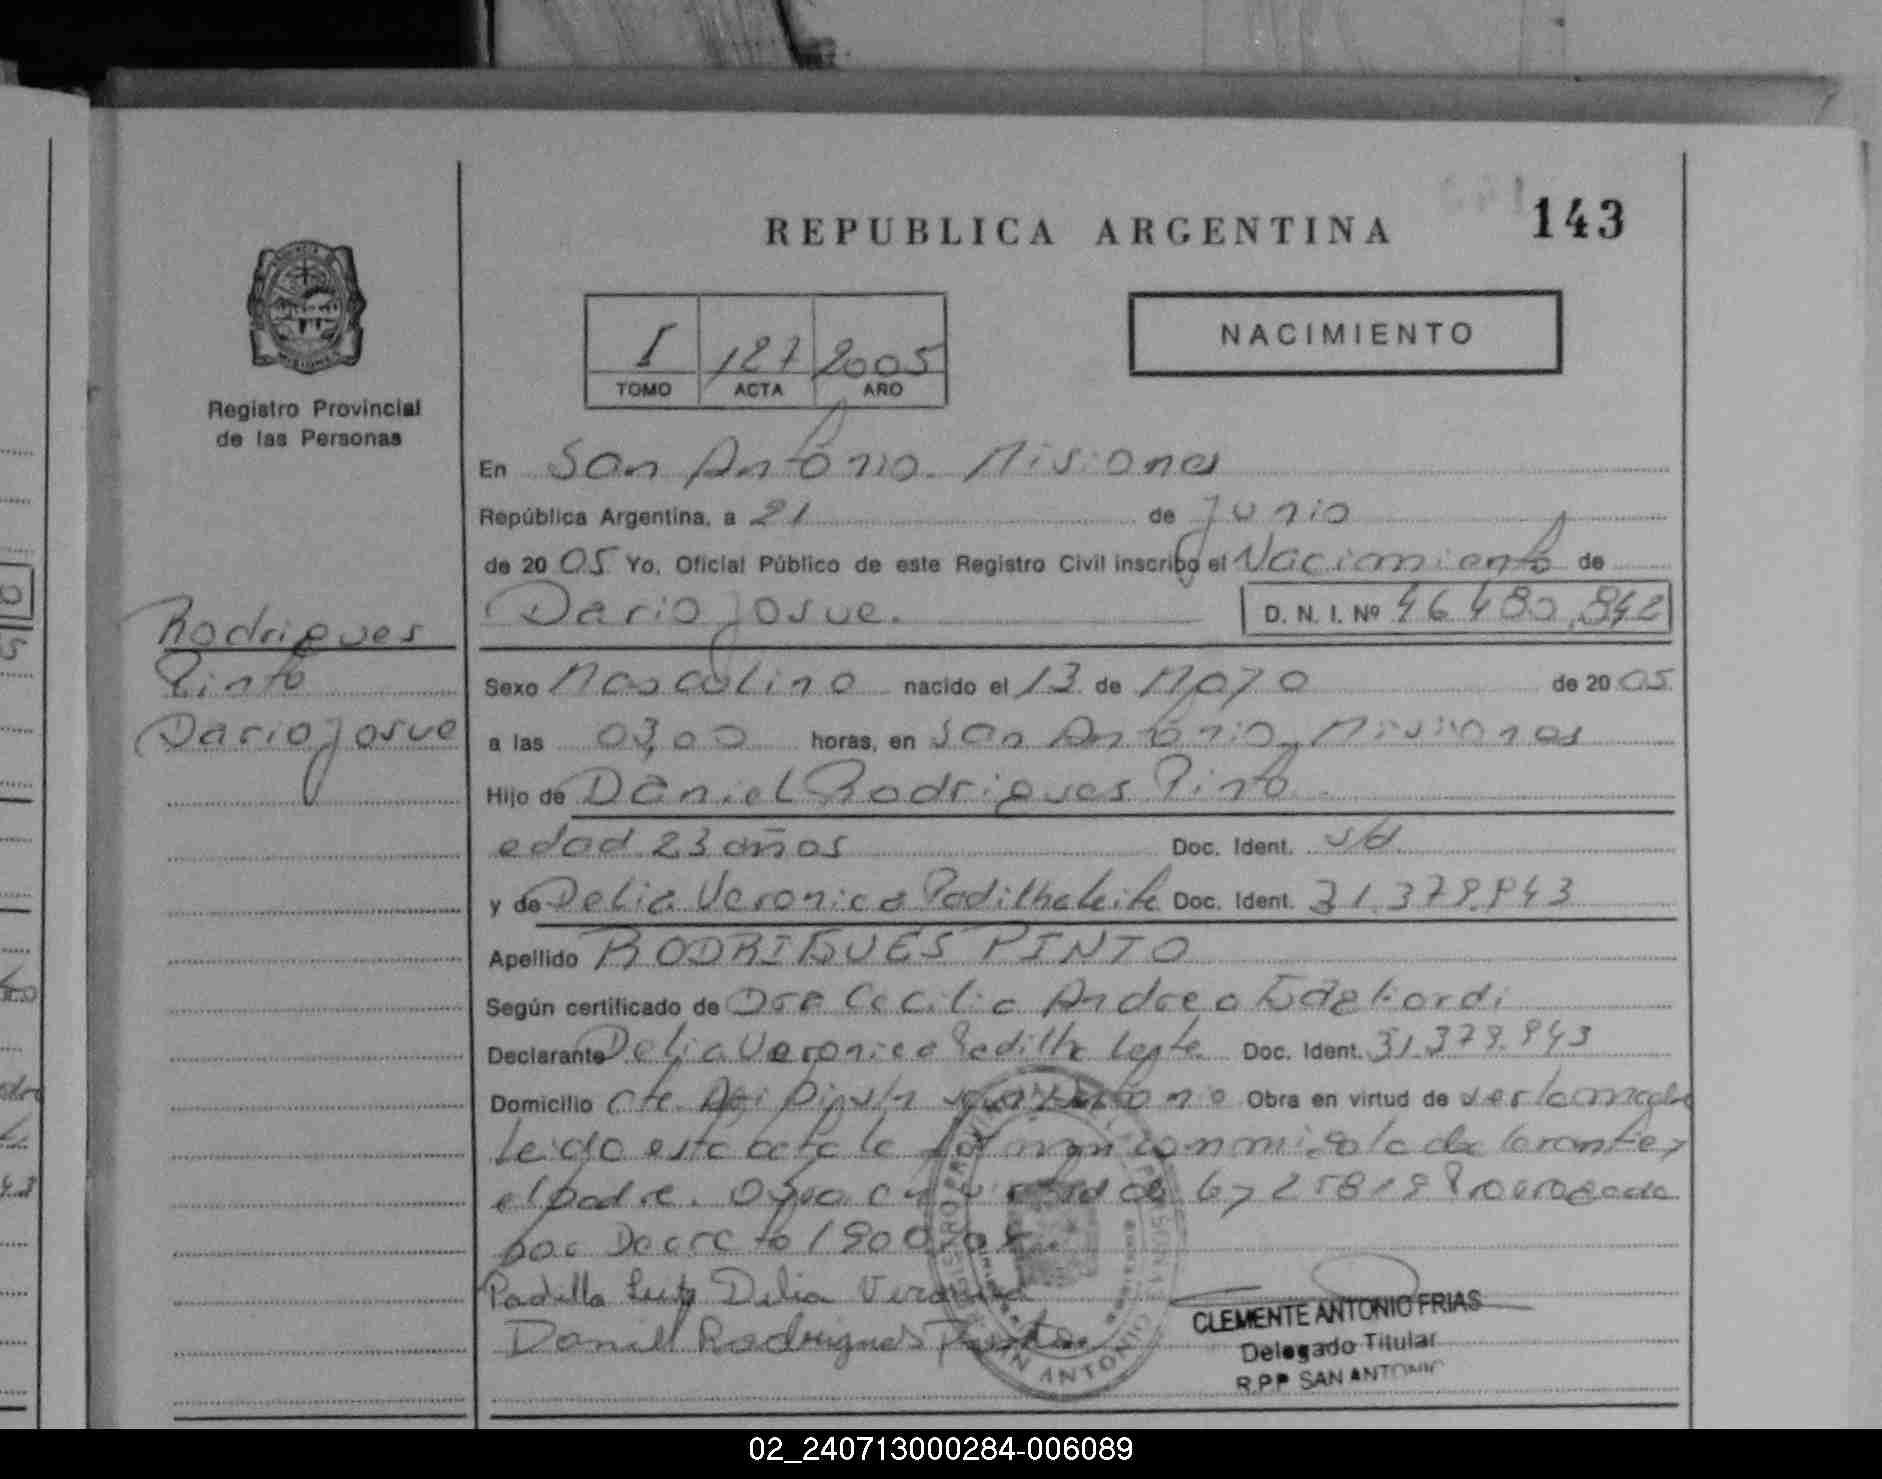 REPUBLICA ARGENTINA
143
I 127 2005
TOMO ACTA AÑO
NACIMIENTO
Registro Provincial
de las Personas
Rodrigues
Pinto
Dario Josue
En San Antonio Misiones
República Argentina, a 21 de Junio
de 2005 Yo, Oficial Público de este Registro Civil inscribo el Nacimiento de
Dario Josue. D. N. I. Nº 46.480.842
Sexo Masculino nacido el 13 de Mayo de 2005
a las 03,00 horas, en San Antonio, Misiones
Hijo de Daniel Rodrigues Pinto
edad 23 años Doc. Ident. s/d
y de Delia Veronica Padilha Leite Doc. Ident. 31.379.943
Apellido RODRIGUES PINTO
Según certificado de Dra Cecilia Andrea
Declarante Delia Veronica Padilha Leite Doc. Ident. 31.379.943
Domicilio San Antonio Obra en virtud de ser la madre
Leido esta acta la firman conmigo la declarante y
el padre. Obra en virtud de Ley 25819 Prorrogada
por Decreto
Padilla Delia Veronica
Daniel Rodrigues Pinto
SAN ANTONIO
CLEMENTE ANTONIO FRIAS
Delegado Titular
R.P.P. SAN ANTONIO
02_240713000284-006089